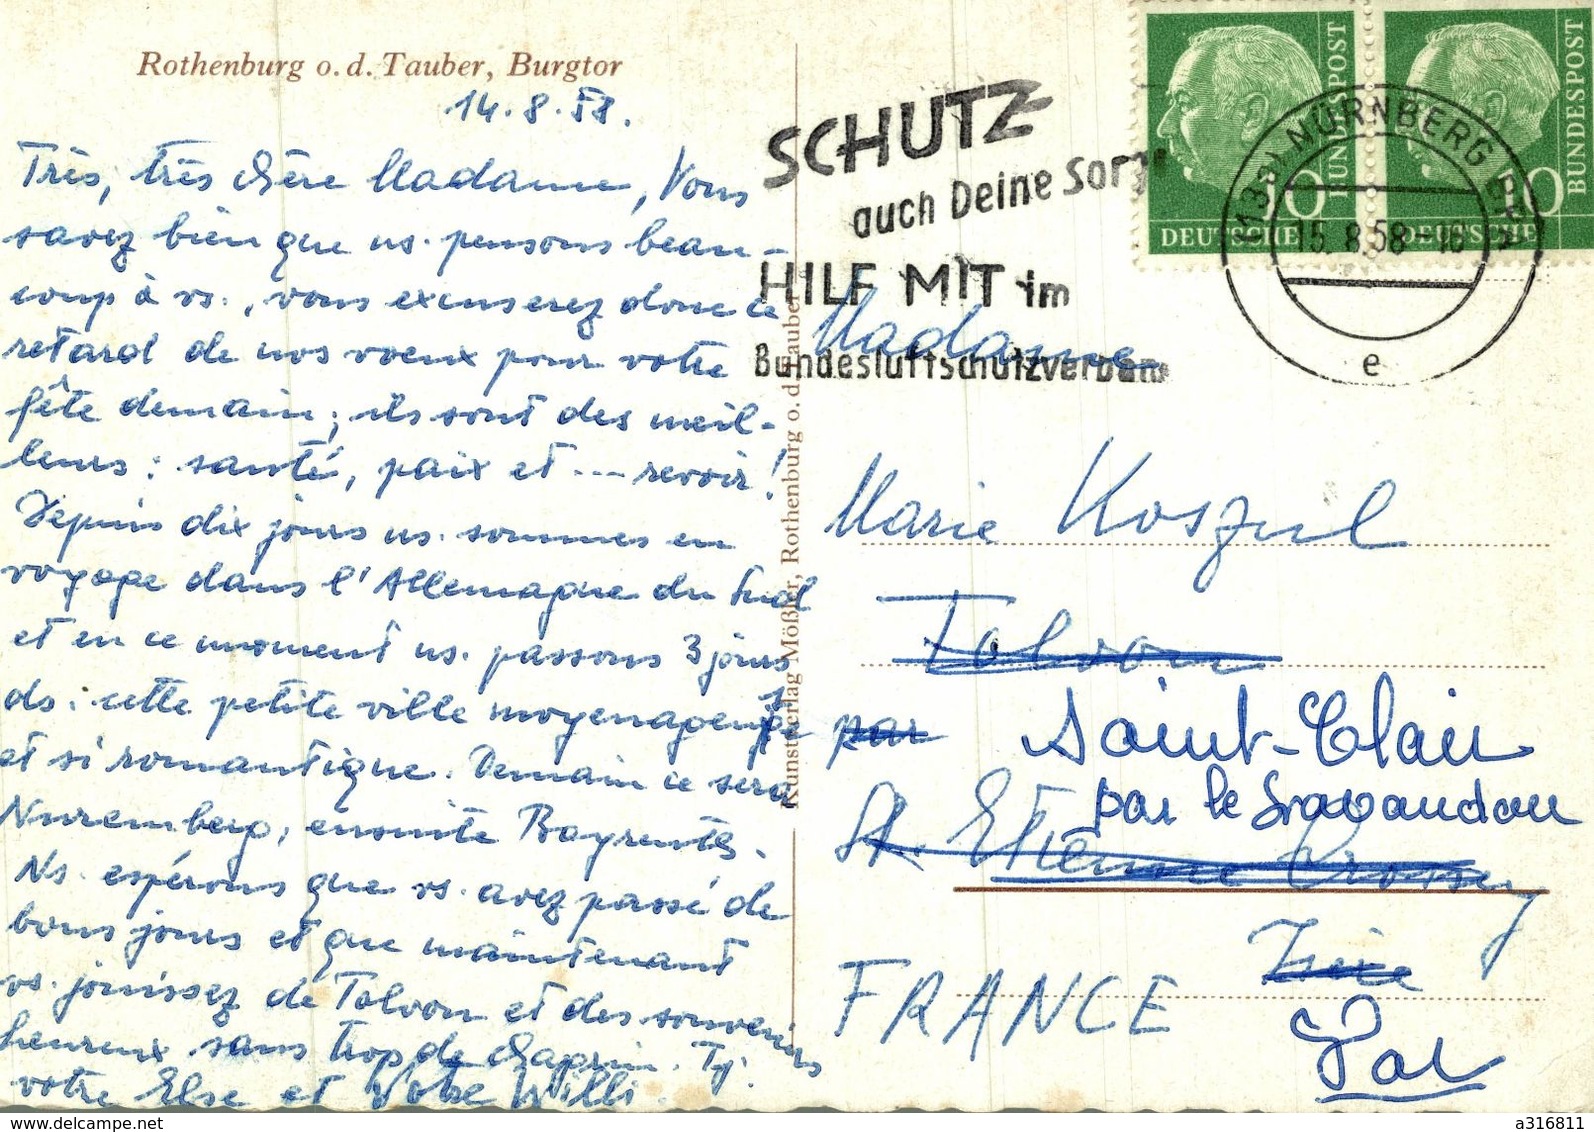 Rothenburg o. d. Tauber, Burgtor
14.8.58.
Très, très chère Madame, Vous
savez bien que ns. pensons beau-
coup à vs., vous excuserez donc ce
retard de nos voeux pour votre
fête demain; ils sont des meil-
leurs: santé, paix et --- revoir!
Depuis dix jours ns. sommes en
voyage dans l'Allemagne du Sud
et en ce moment ns. passons 3 jours
ds. cette petite ville moyenageuse
et si romantique. Demain ce sera
Nuremberg, ensuite Bayreuth.
Ns. espérons que vs. avez passé de
bons jours et que maintenant
vs. jouissez de Talvon et des souvenirs
heureux sans trop de chagrin. Tj.
votre Else et Votre Willi.
Kunstverlag Mößler, Rothenburg o. d. Tauber
SCHUTZ
auch Deine Sorge
HILF MIT im
Bundesluftschutzverband
DEUTSCHE BUNDESPOST 10
DEUTSCHE BUNDESPOST 10
(13a) NÜRNBERG
15.8.58-18
e
Madame
Marie Koszul
Talvon
par
Saint-Clair
par le Lavandou
St. Etienne Crossey
Isère
FRANCE
Var
www.delcampe.net
a316811